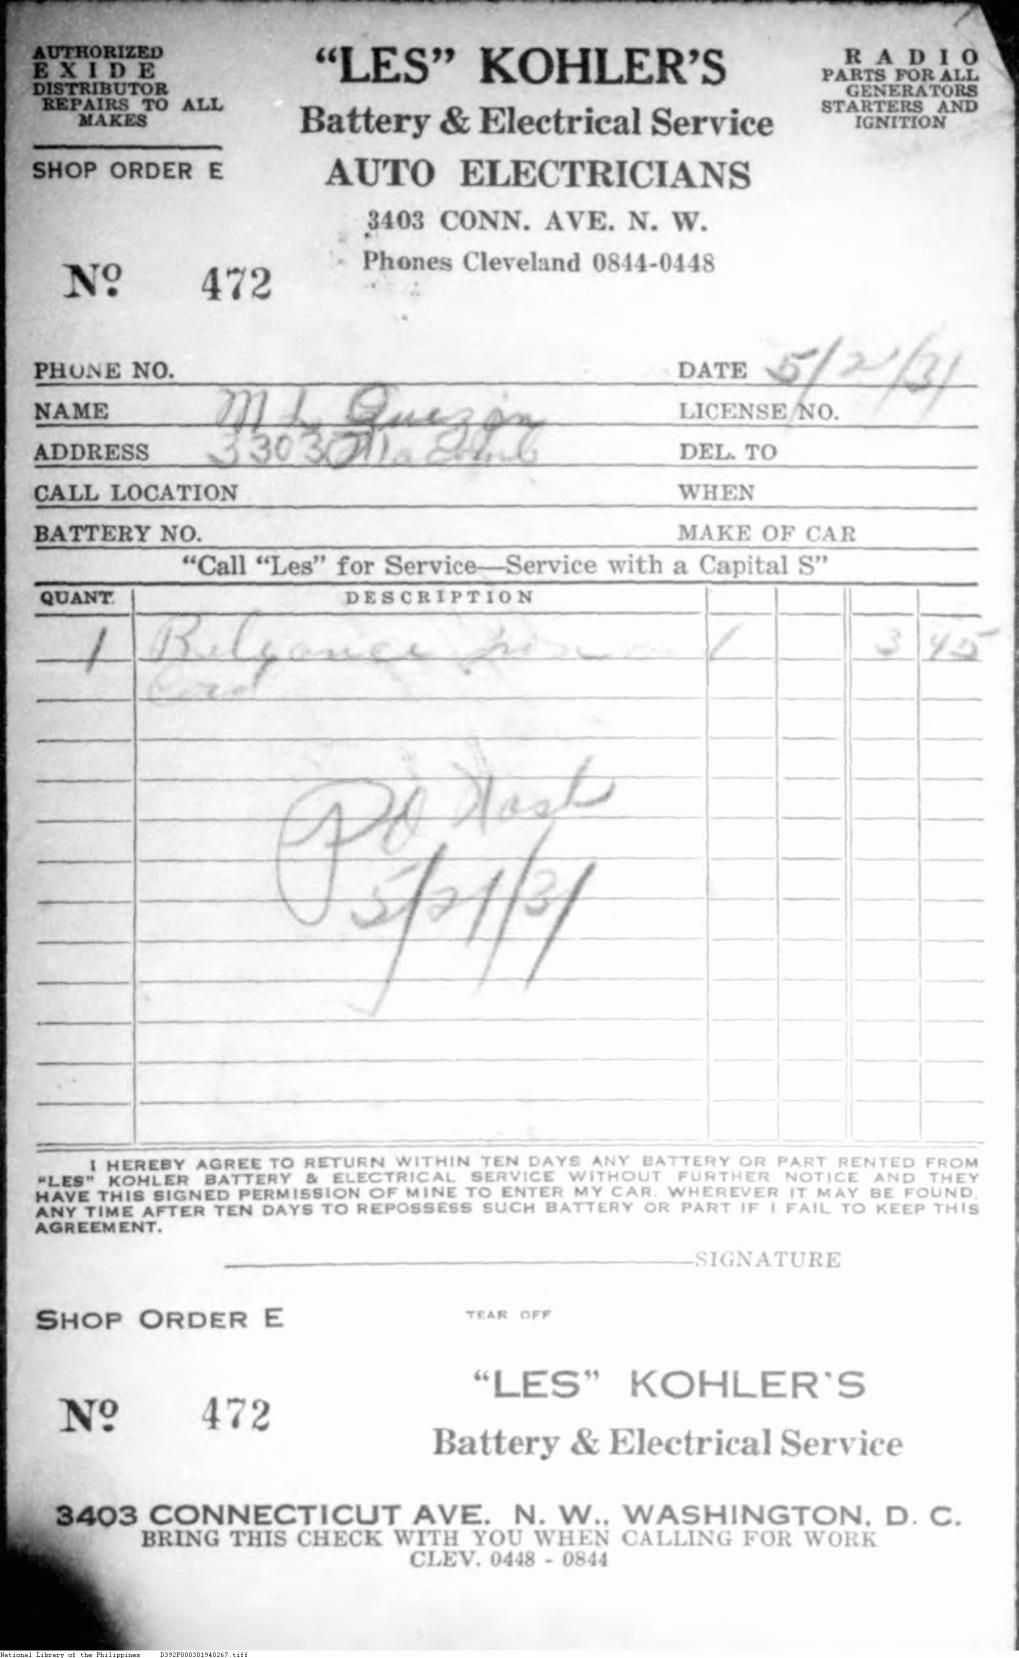 AUTHORIZED
EXIDE
DISTRIBUTOR
REPAIRS TO ALL
MAKES
SHOP ORDER E
"LES" KOHLER'S
Battery & Electrical Service
AUTO ELECTRICIANS
3403 CONN. AVE. N. W.
Phones Cleveland 0844-0448
RADIO
PARTS FOR ALL
GENERATORS
STARTERS AND
IGNITION
Nº 472
PHONE NO. DATE 5/21/31
NAME M L Quezon LICENSE NO.
ADDRESS 3303 Macomb DEL. TO
CALL LOCATION WHEN
BATTERY NO. MAKE OF CAR
"Call "Les" for Service—Service with a Capital S"
QUANT. DESCRIPTION
1 1 3 45
Cord
Pd
5/21/31
I HEREBY AGREE TO RETURN WITHIN TEN DAYS ANY BATTERY OR PART RENTED FROM
"LES" KOHLER BATTERY & ELECTRICAL SERVICE WITHOUT FURTHER NOTICE AND THEY
HAVE THIS SIGNED PERMISSION OF MINE TO ENTER MY CAR. WHEREVER IT MAY BE FOUND,
ANY TIME AFTER TEN DAYS TO REPOSSESS SUCH BATTERY OR PART IF I FAIL TO KEEP THIS
AGREEMENT.
SIGNATURE
SHOP ORDER E TEAR OFF
"LES" KOHLER'S
Nº 472
Battery & Electrical Service
3403 CONNECTICUT AVE. N. W., WASHINGTON, D. C.
BRING THIS CHECK WITH YOU WHEN CALLING FOR WORK
CLEV. 0448 - 0844
National Library of the Philippines D392P000301940267.tiff